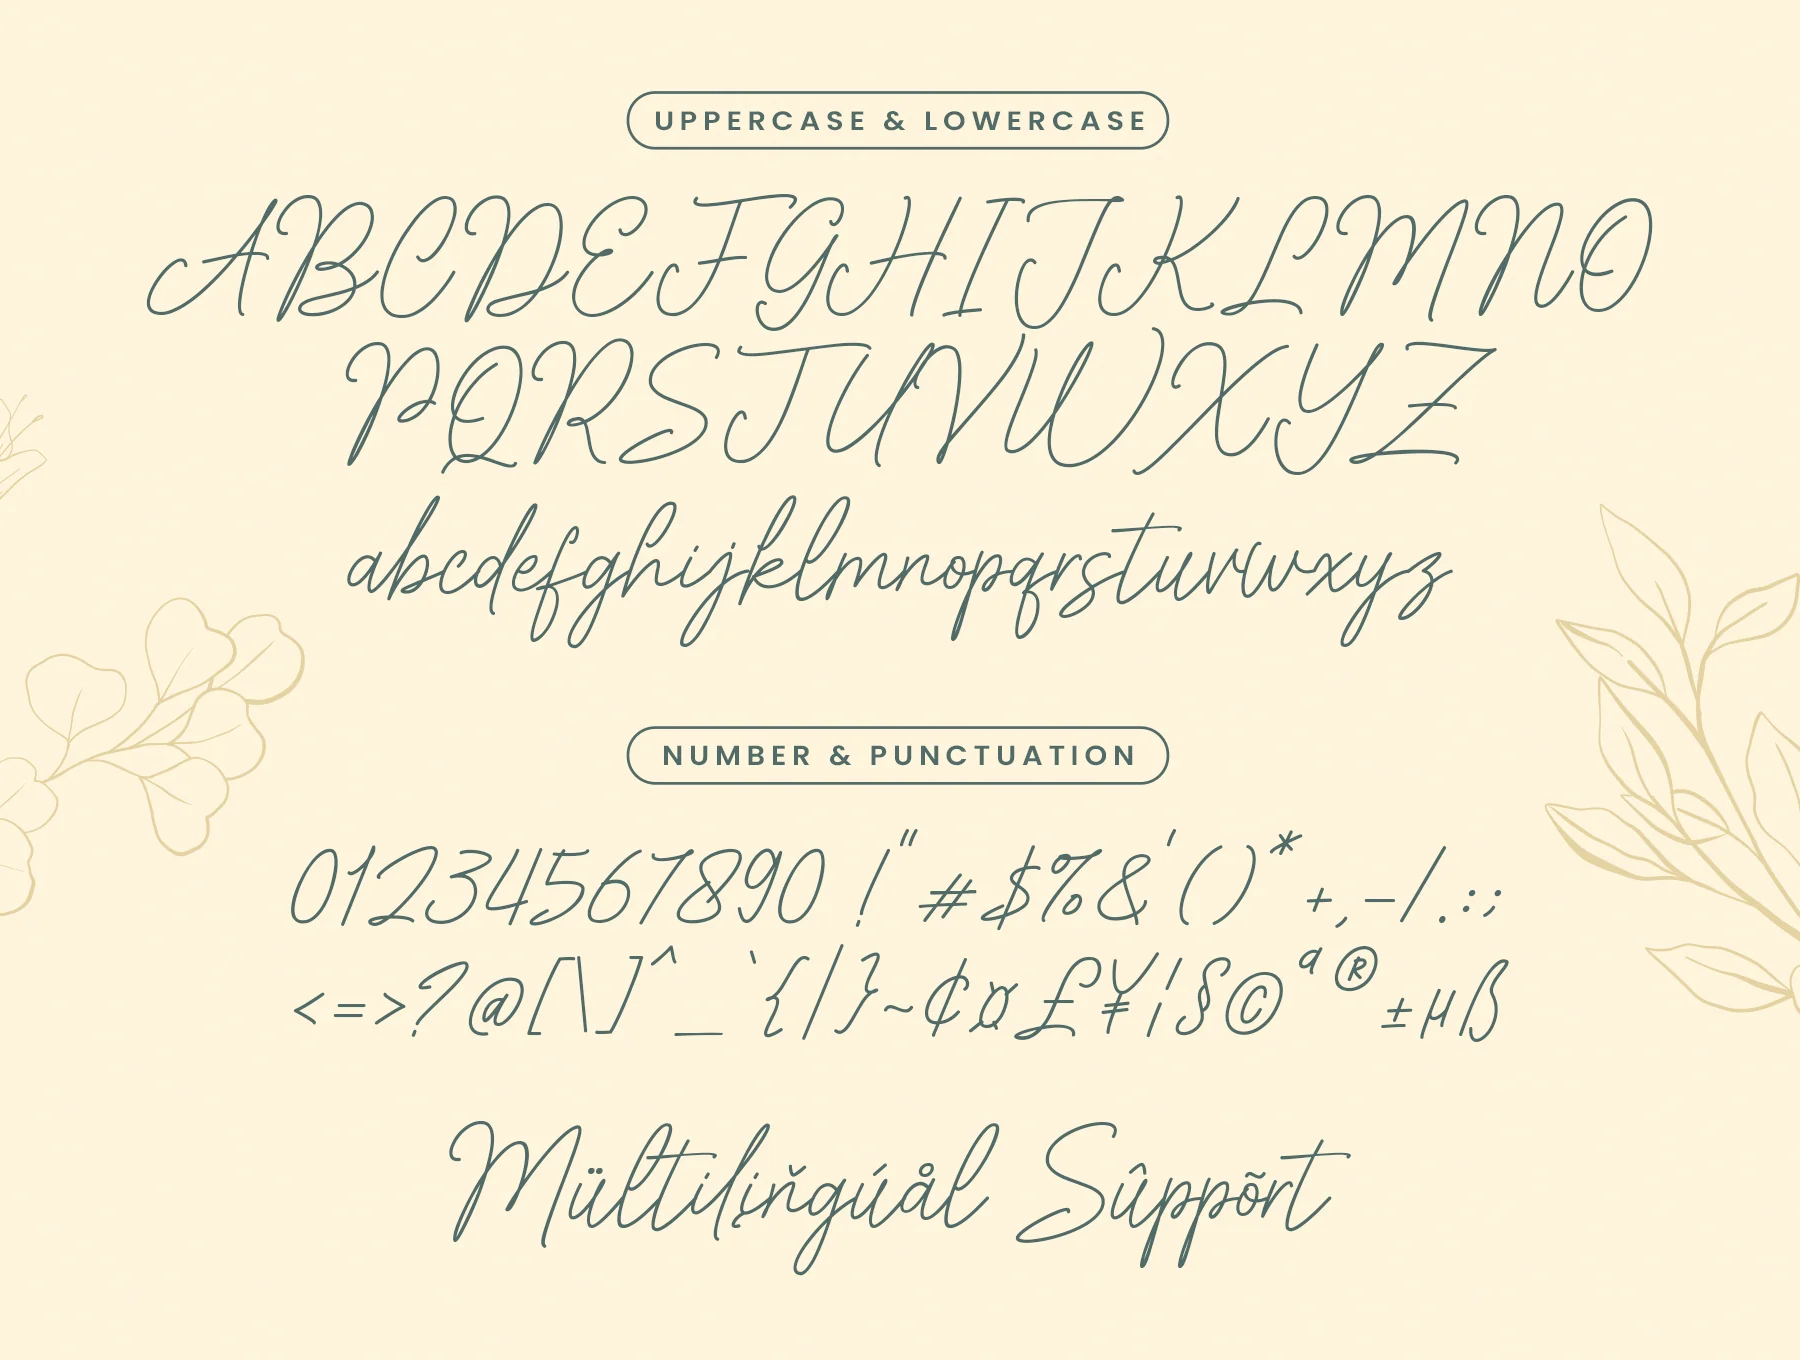 UPPERCASE & LOWERCASE
ABCDEFGHIJKLMNO
PQRSTUVWXYZ
abcdefghijklmnopqrstuvwxyz
NUMBER & PUNCTUATION
01234567890 !"#$%&'()*+,-/.:;
<=>?@[\]^_`{|}~¢¤£¥¦§©ª®±µß
Mültilįňgúål Sûppõrt